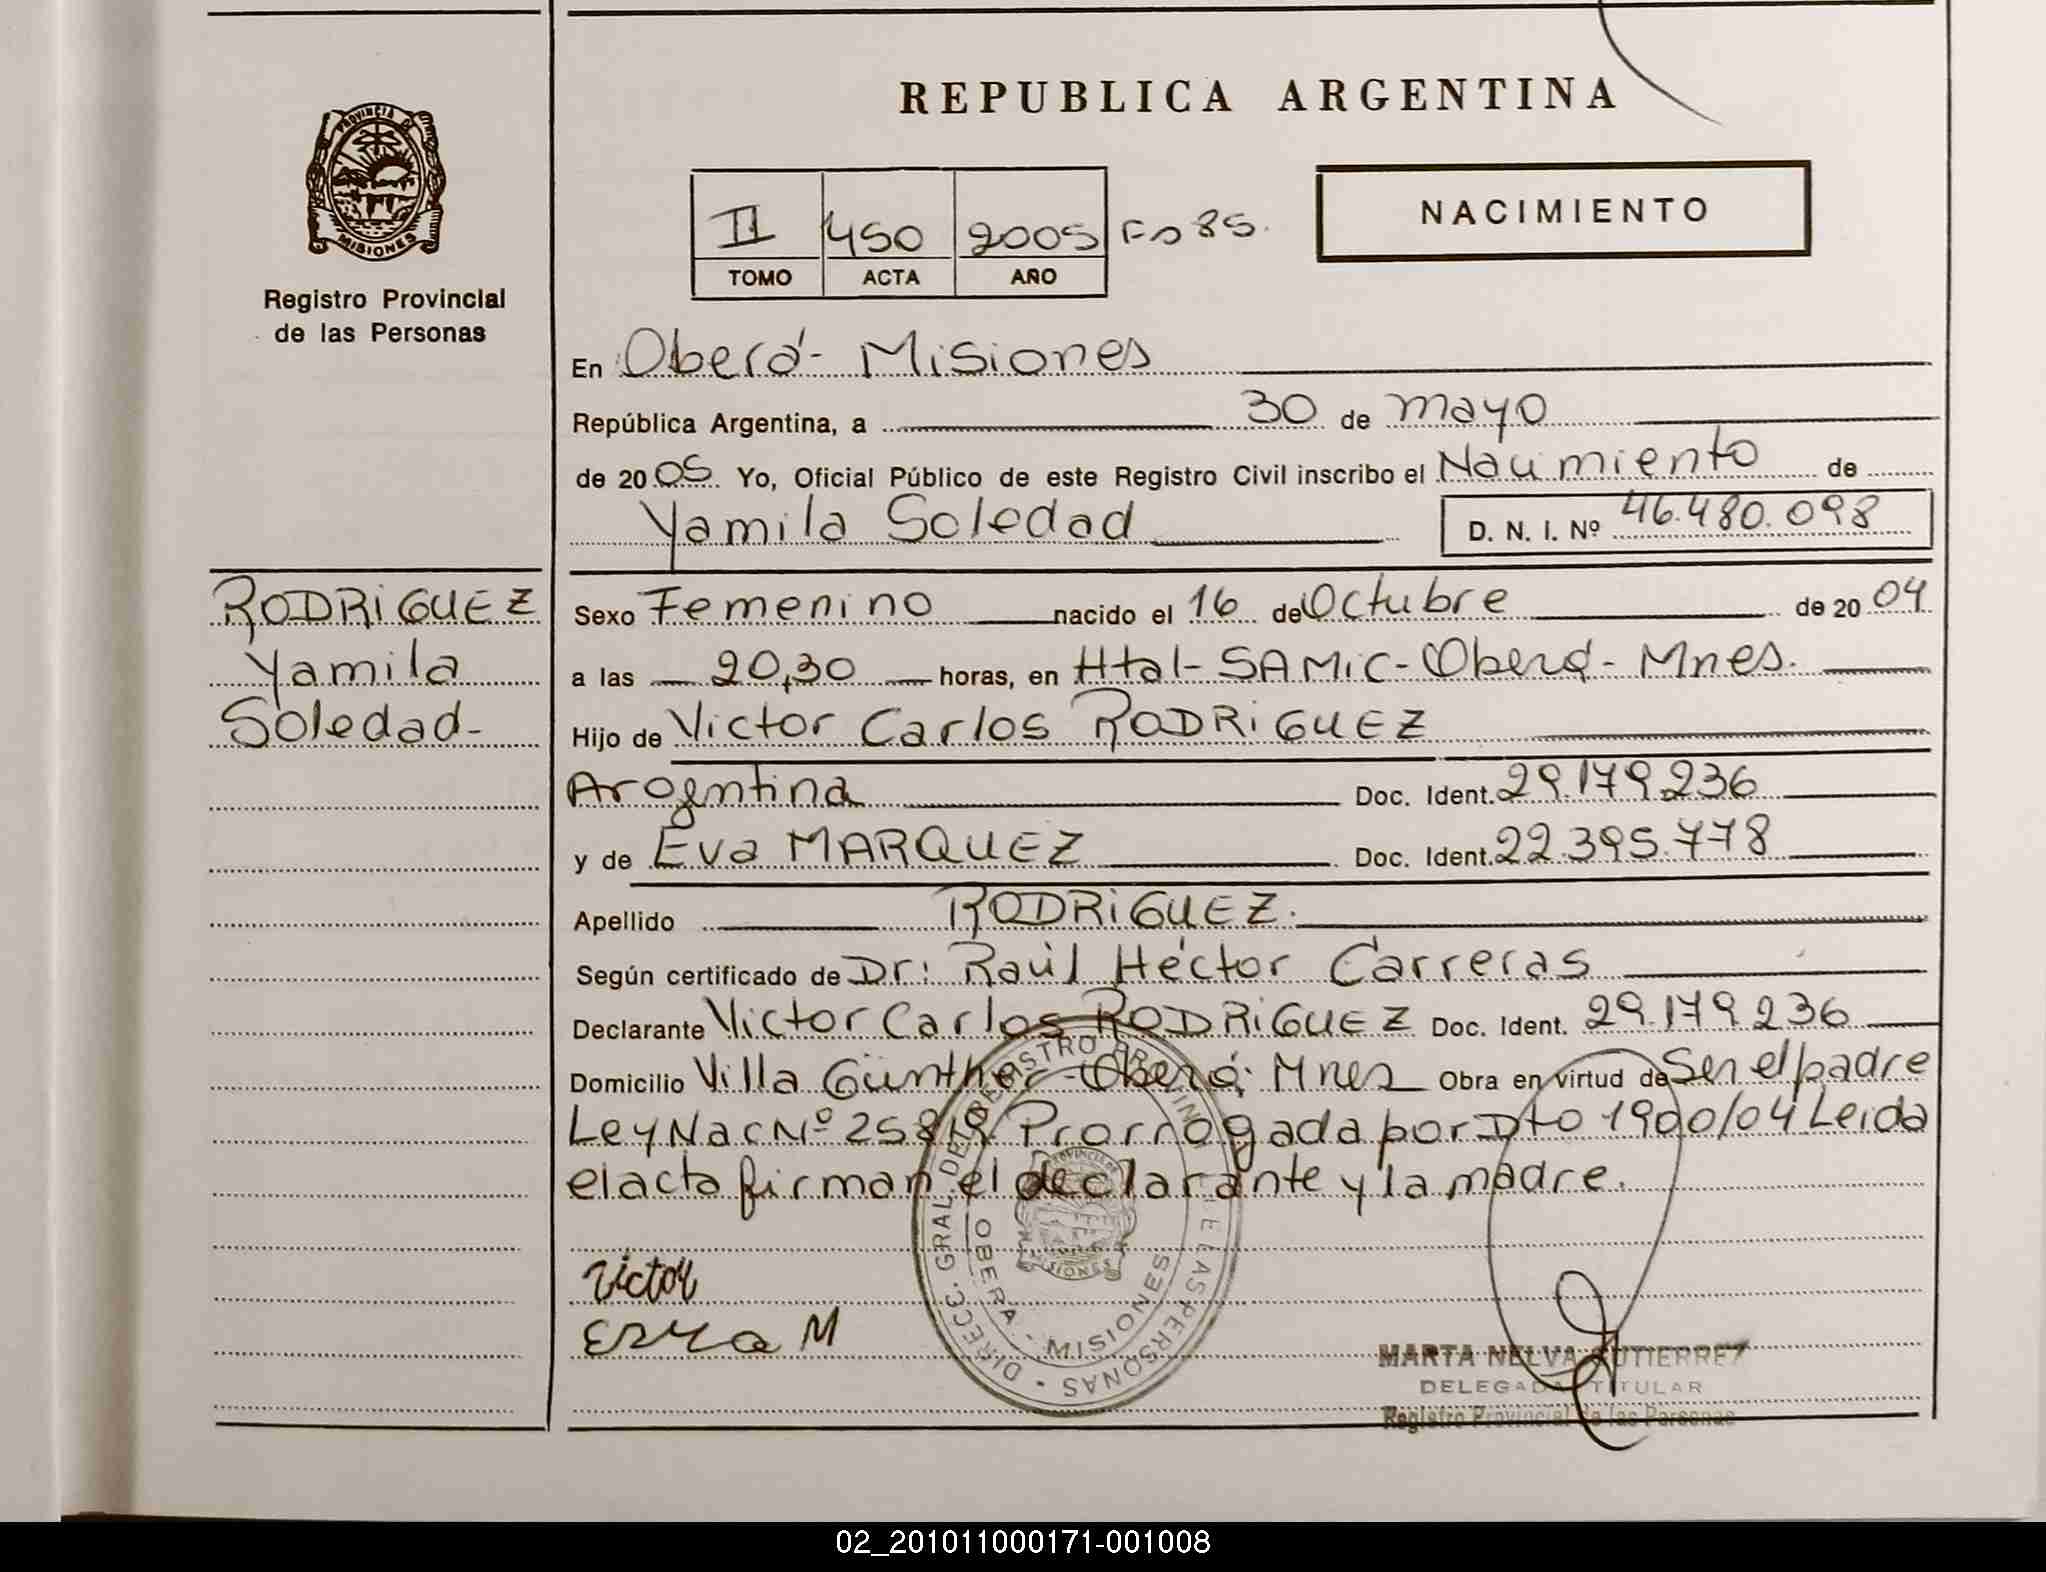 REPUBLICA ARGENTINA
PROVINCIA DE
MISIONES
Registro Provincial
de las Personas
II 450 2005 Fo 85.
TOMO ACTA AÑO
NACIMIENTO
En Oberá - Misiones
República Argentina, a 30 de mayo
de 2005. Yo, Oficial Público de este Registro Civil inscribo el Nacimiento de
Yamila Soledad D. N. I. Nº 46.480.098
RODRIGUEZ
Yamila
Soledad-
Sexo Femenino nacido el 16 de Octubre de 2004
a las 20,30 horas, en Htal - SAMIC - Oberá - Mnes.
Hijo de Victor Carlos RODRIGUEZ
Argentina Doc. Ident. 29.179.236
y de Eva MARQUEZ Doc. Ident. 22.395.778
Apellido RODRIGUEZ.
Según certificado de Dr: Raúl Héctor Carreras
Declarante Victor Carlos RODRIGUEZ Doc. Ident. 29.179.236
Domicilio Villa Günther - Oberá; Mnes Obra en virtud de Ser el padre
Ley Nac Nº 25819 Prorrogada por Dto 1900/04 Leida
el acta firman el declarante y la madre.
victor
M
DIRECC. GRAL. DE REGISTRO PROVINCIAL DE LAS PERSONAS
OBERA - MISIONES
PROVINCIA DE
MISIONES
MARTA NELVA GUTIERREZ
DELEGADA TITULAR
Registro Provincial de las Personas
02_201011000171-001008